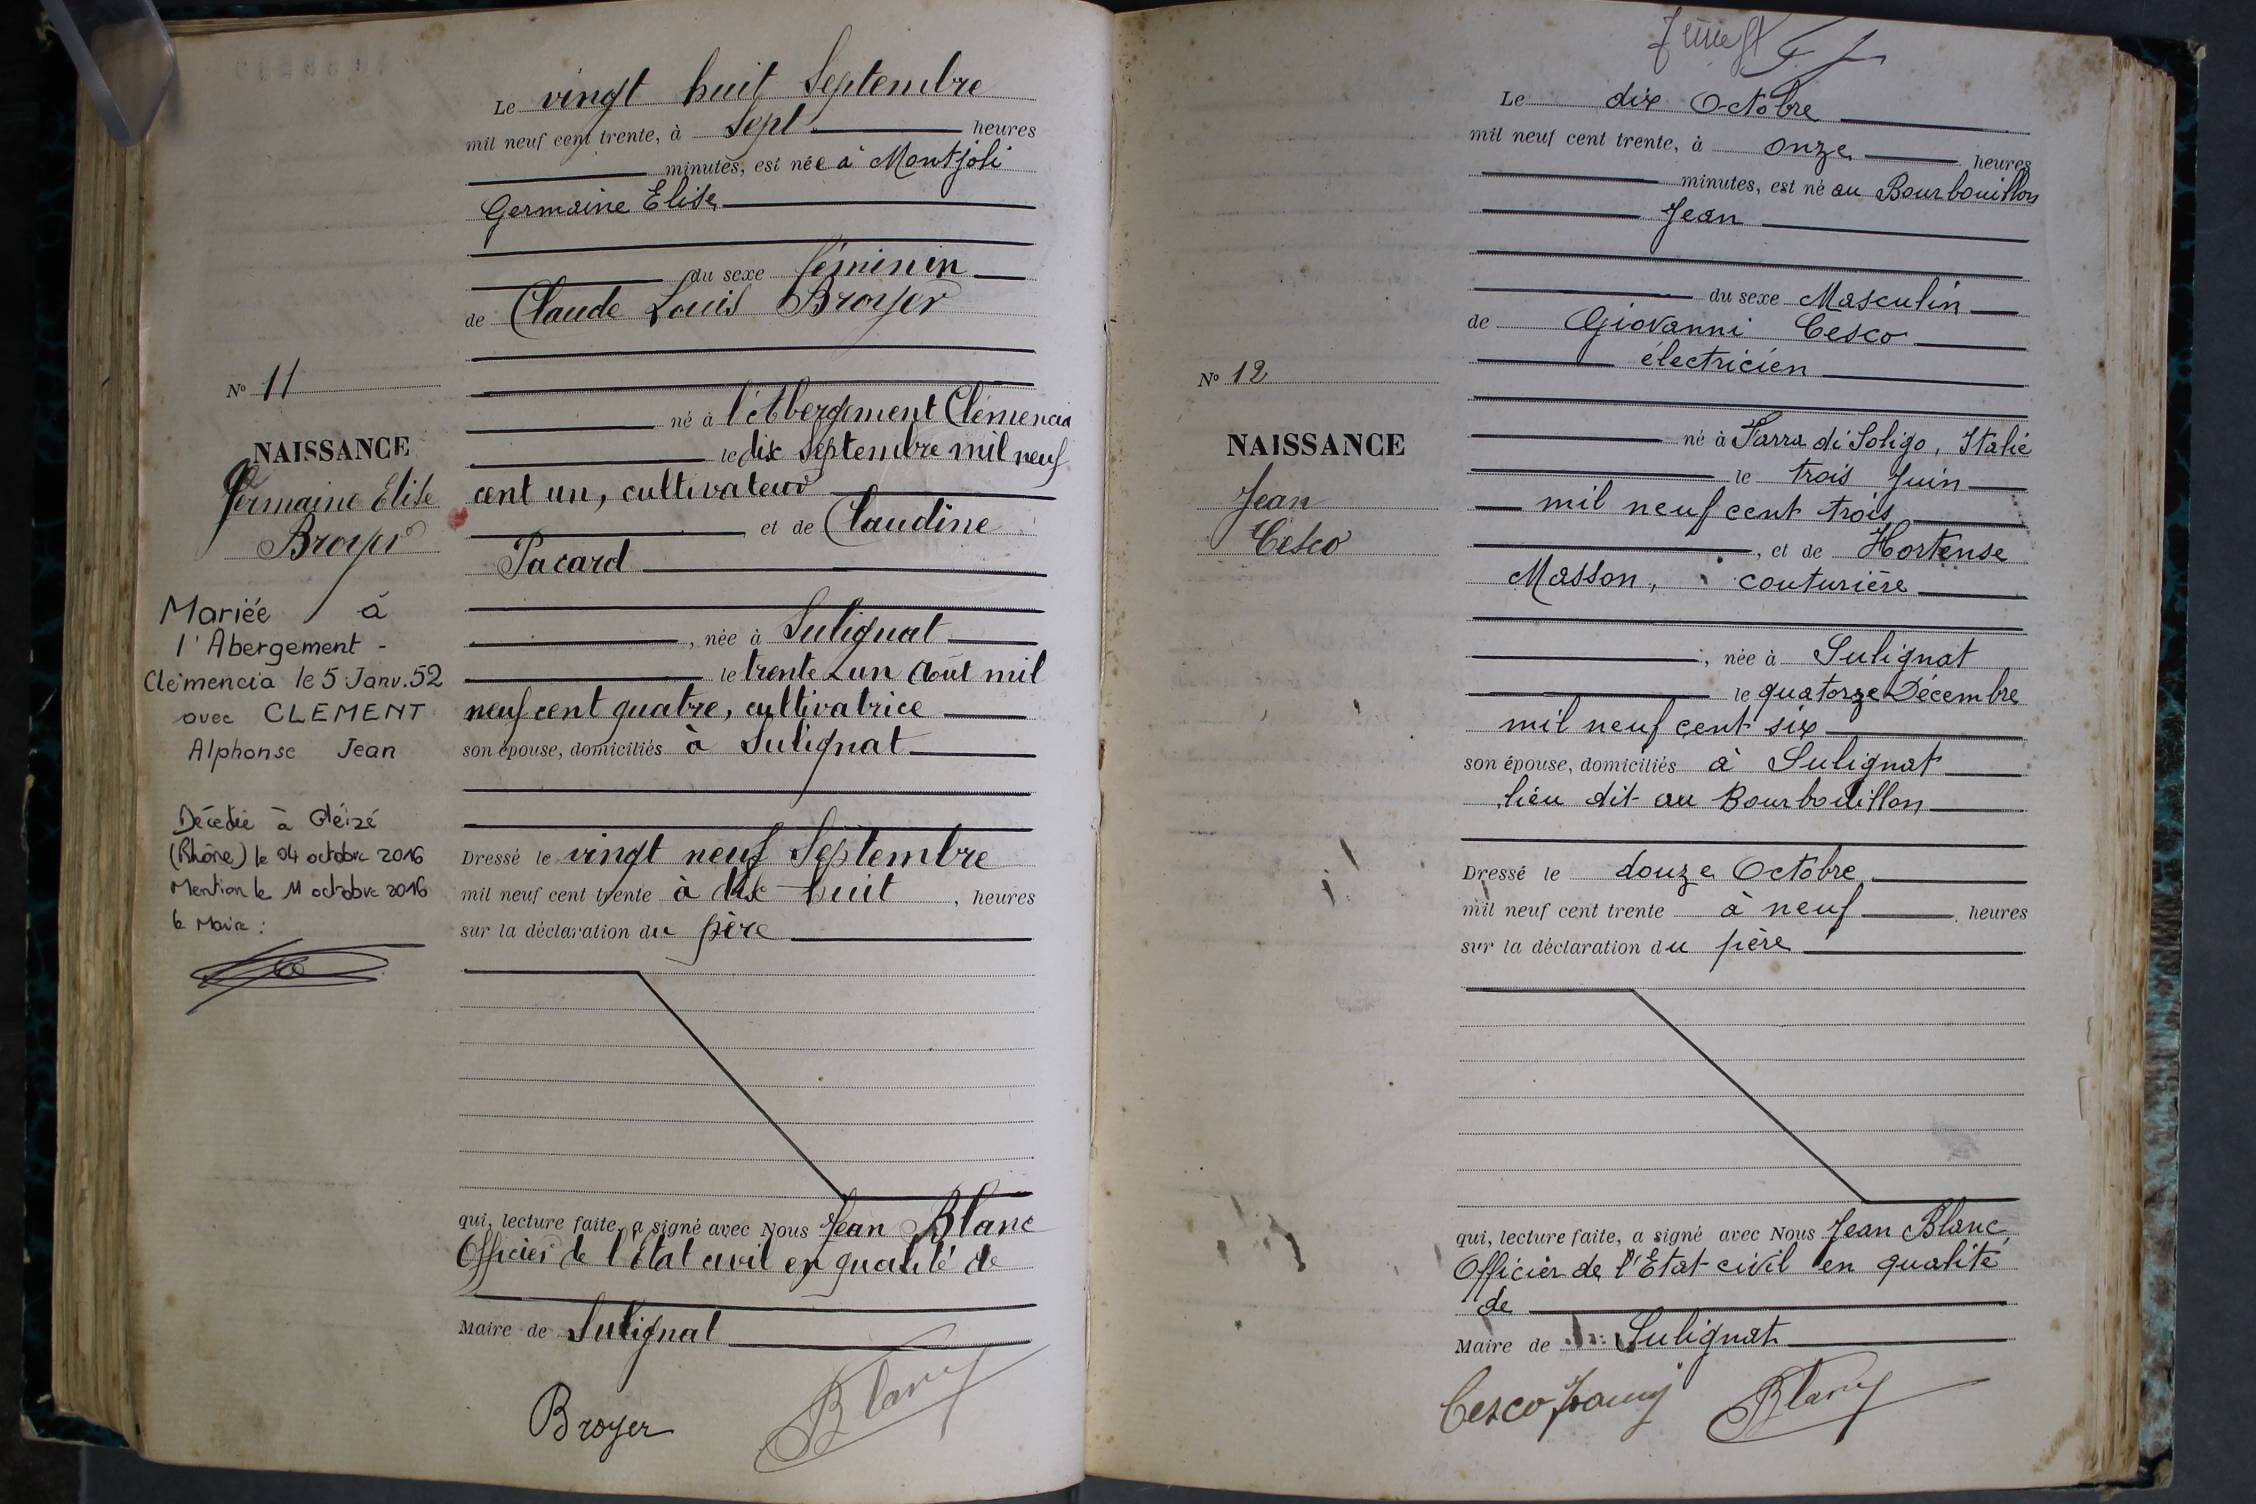 Le vingt huit Septembre
mil neuf cent trente, à Sept heures
minutes, est née à Montjoli
Germaine Elise
du sexe féminin
de Claude Louis Broyer
né à l'Abergement Clémencia
le dix Septembre mil neuf
cent un, cultivateur
et de Claudine
Pacard
, née à Sulignat
le trente un Août mil
neuf cent quatre, cultivatrice
son épouse, domiciliés à Sulignat
Dressé le vingt neuf Septembre
mil neuf cent trente à dix huit, heures
sur la déclaration du père
qui, lecture faite, a signé avec Nous Jean Blanc
Officier de l'Etat civil en qualité de
Maire de Sulignat
Broyer Blanc
N° 11
NAISSANCE
Germaine Elise
Broyer
Mariée à
l'Abergement -
Clémencia le 5 Janv. 52
avec CLEMENT
Alphonse Jean
Décédée à Gleizé
(Rhône) le 04 octobre 2016
Mention le 11 octobre 2016
le Maire :
Le dix Octobre
mil neuf cent trente, à onze heures
minutes, est né au Bourbouillon
Jean
du sexe Masculin
de Giovanni Cesco
électricien
né à Farra di Soligo, Italie
le trois Juin
mil neuf cent trois
, et de Hortense
Masson, couturière
, née à Sulignat
le quatorze Décembre
mil neuf cent six
son épouse, domiciliés à Sulignat
lieu dit au Bourbouillon
Dressé le douze Octobre
mil neuf cent trente à neuf, heures
sur la déclaration du père
qui, lecture faite, a signé avec Nous Jean Blanc,
Officier de l'Etat-civil en qualité
de
Maire de Sulignat
Cesco Blanc
N° 12
NAISSANCE
Jean
Cesco